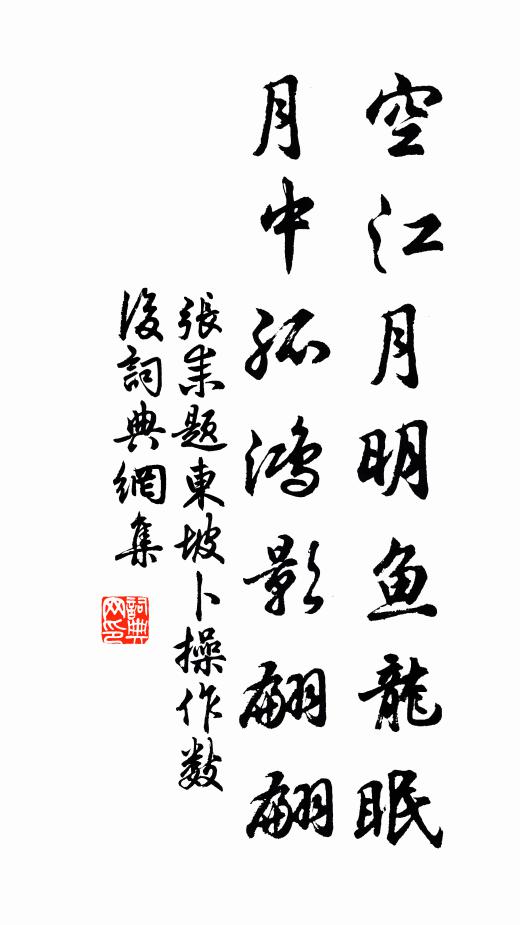 空江月明魚龍眠
月中孤鴻影翩翩
張耒題東坡卜操作數
後詞典網集
詞典
网印